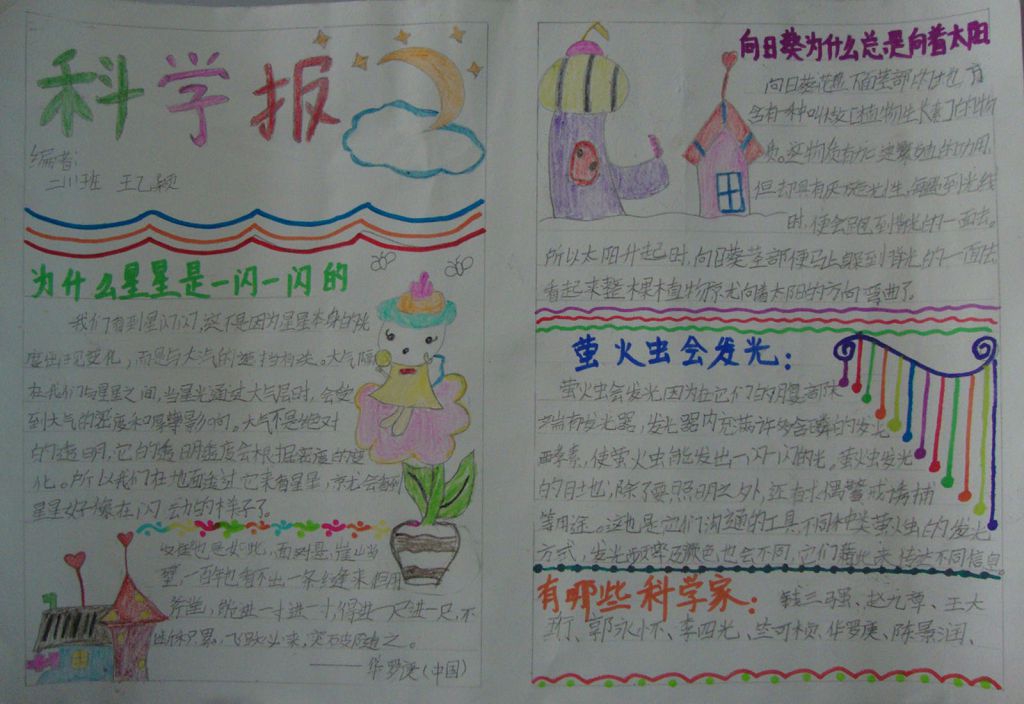 科学报
编者:
二(1)班 王乙颖
为什么星星是一闪一闪的
我们看到星闪闪,这不是因为星星本身的光
度出现变化,而是与大气的遮挡有关。大气隔
在我们与星星之间,当星光通过大气层时,会受
到大气的密度和厚薄影响。大气不是绝对
的透明,它的透明度会根据密度的变
化。所以我们在地面透过它来看星星,就会看到
星星好像在闪动的样子了。
面对悬崖峭
壁,一百年也看不出一条缝来,但用
斧凿,能进一寸进一寸,得进一尺进一尺,不
断积累。飞跃必来,突破随之。
——华罗庚(中国)
向日葵为什么总是向着太阳
向日葵花盘下面茎部的地方
含有一种叫做「植物生长素」的物
质。这物质有
但却具有厌光性,每遇到光线
时,便会跑到背光的一面去。
所以太阳升起时,向日葵茎部便马上躲到背光的一面去
看起来整棵植物就光向着太阳的方向弯曲了。
萤火虫会发光:
萤火虫会发光因为在它们的腹部末
端有发光器,发光器内充满许多含磷的发光
酵素,使萤火虫能发出一闪一闪的光。萤火虫发光
的目地,除了要照明之外,还有求偶警戒诱捕
等用途。这也是它们沟通的工具,不同种类萤火虫的发光
方式,发光频率及颜色也会不同,它们藉此来传达不同信息
有哪些科学家:钱三强、赵九章、王大
珩、郭永怀、李四光、竺可桢、华罗庚、陈景润、